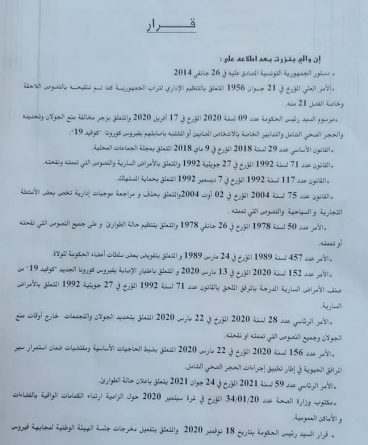 قـــرار
إن والي بنزرت بعد اطلاعه على :
• دستور الجمهورية التونسية المصادق عليه في 26 جانفي 2014
• الأمر العلي المؤرخ في 21 جوان 1956 المتعلق بالتنظيم الإداري لتراب الجمهورية كما تم تنقيحه بالنصوص اللاحقة
وخاصة الفصل 21 منه.
• مرسوم السيد رئيس الحكومة عدد 09 لسنة 2020 المؤرخ في 17 أفريل 2020 والمتعلق بزجر مخالفة منع الجولان وتحديده
والحجر الصحي الشامل والتدابير الخاصة بالأشخاص المصابين أو المشتبه بإصابتهم بفيروس كورونا "كوفيد 19".
• القانون الأساسي عدد 29 لسنة 2018 المؤرخ في 9 ماي 2018 المتعلق بمجلة الجماعات المحلية.
• القانون عدد 71 لسنة 1992 المؤرخ في 27 جويلية 1992 والمتعلق بالأمراض السارية والنصوص التي تممته ونقحته.
• القانون عدد 117 لسنة 1992 المؤرخ في 7 ديسمبر 1992 المتعلق بحماية المستهلك.
• القانون عدد 75 لسنة 2004 المؤرخ في 02 أوت 2004 والمتعلق بحذف و مراجعة موجبات إدارية تخص بعض الأنشطة
التجارية و السياحية والنصوص التي تممته .
• الأمر عدد 50 لسنة 1978 المؤرخ في 26 جانفي 1978 والمتعلق بتنظيم حالة الطوارئ و على جميع النصوص التي نقحته
أو تممته.
• الأمر عدد 457 لسنة 1989 المؤرخ في 24 مارس 1989 و المتعلق بتفويض بعض سلطات أعضاء الحكومة للولاة.
• الأمر عدد 152 لسنة 2020 المؤرخ في 13 مارس 2020 و المتعلق باعتبار الإصابة بفيروس كورونا الجديد "كوفيد 19" من
صنف الأمراض السارية المدرجة بالمرفق الملحق بالقانون عدد 71 لسنة 1992 المؤرخ في 27 جويلية 1992 المتعلق بالأمراض
السارية.
• الأمر الرئاسي عدد 28 لسنة 2020 المؤرخ في 22 مارس 2020 المتعلق بتحديد الجولان والتجمعات خارج أوقات منع
الجولان وجميع النصوص التي تممته أو نقحته.
• الأمر عدد 156 لسنة 2020 المؤرخ في 22 مارس 2020 المتعلق بضبط الحاجيات الأساسية ومقتضيات ضمان استمرار سير
المرافق الحيوية في إطار تطبيق إجراءات الحجر الصحي الشامل.
• الأمر الرئاسي عدد 59 لسنة 2021 المؤرخ في 24 جوان 2021 يتعلق بإعلان حالة الطوارئ.
• مكتوب وزارة الصحة عدد 34/01/20 المؤرخ في غرة سبتمبر 2020 حول إلزامية ارتداء الكمامات الواقية بالفضاءات
و الأماكن العمومية.
• قرار السيد رئيس الحكومة بتاريخ 18 نوفمبر 2020 والمتعلق بتفعيل مخرجات جلسة الهيئة الوطنية لمجابهة فيروس